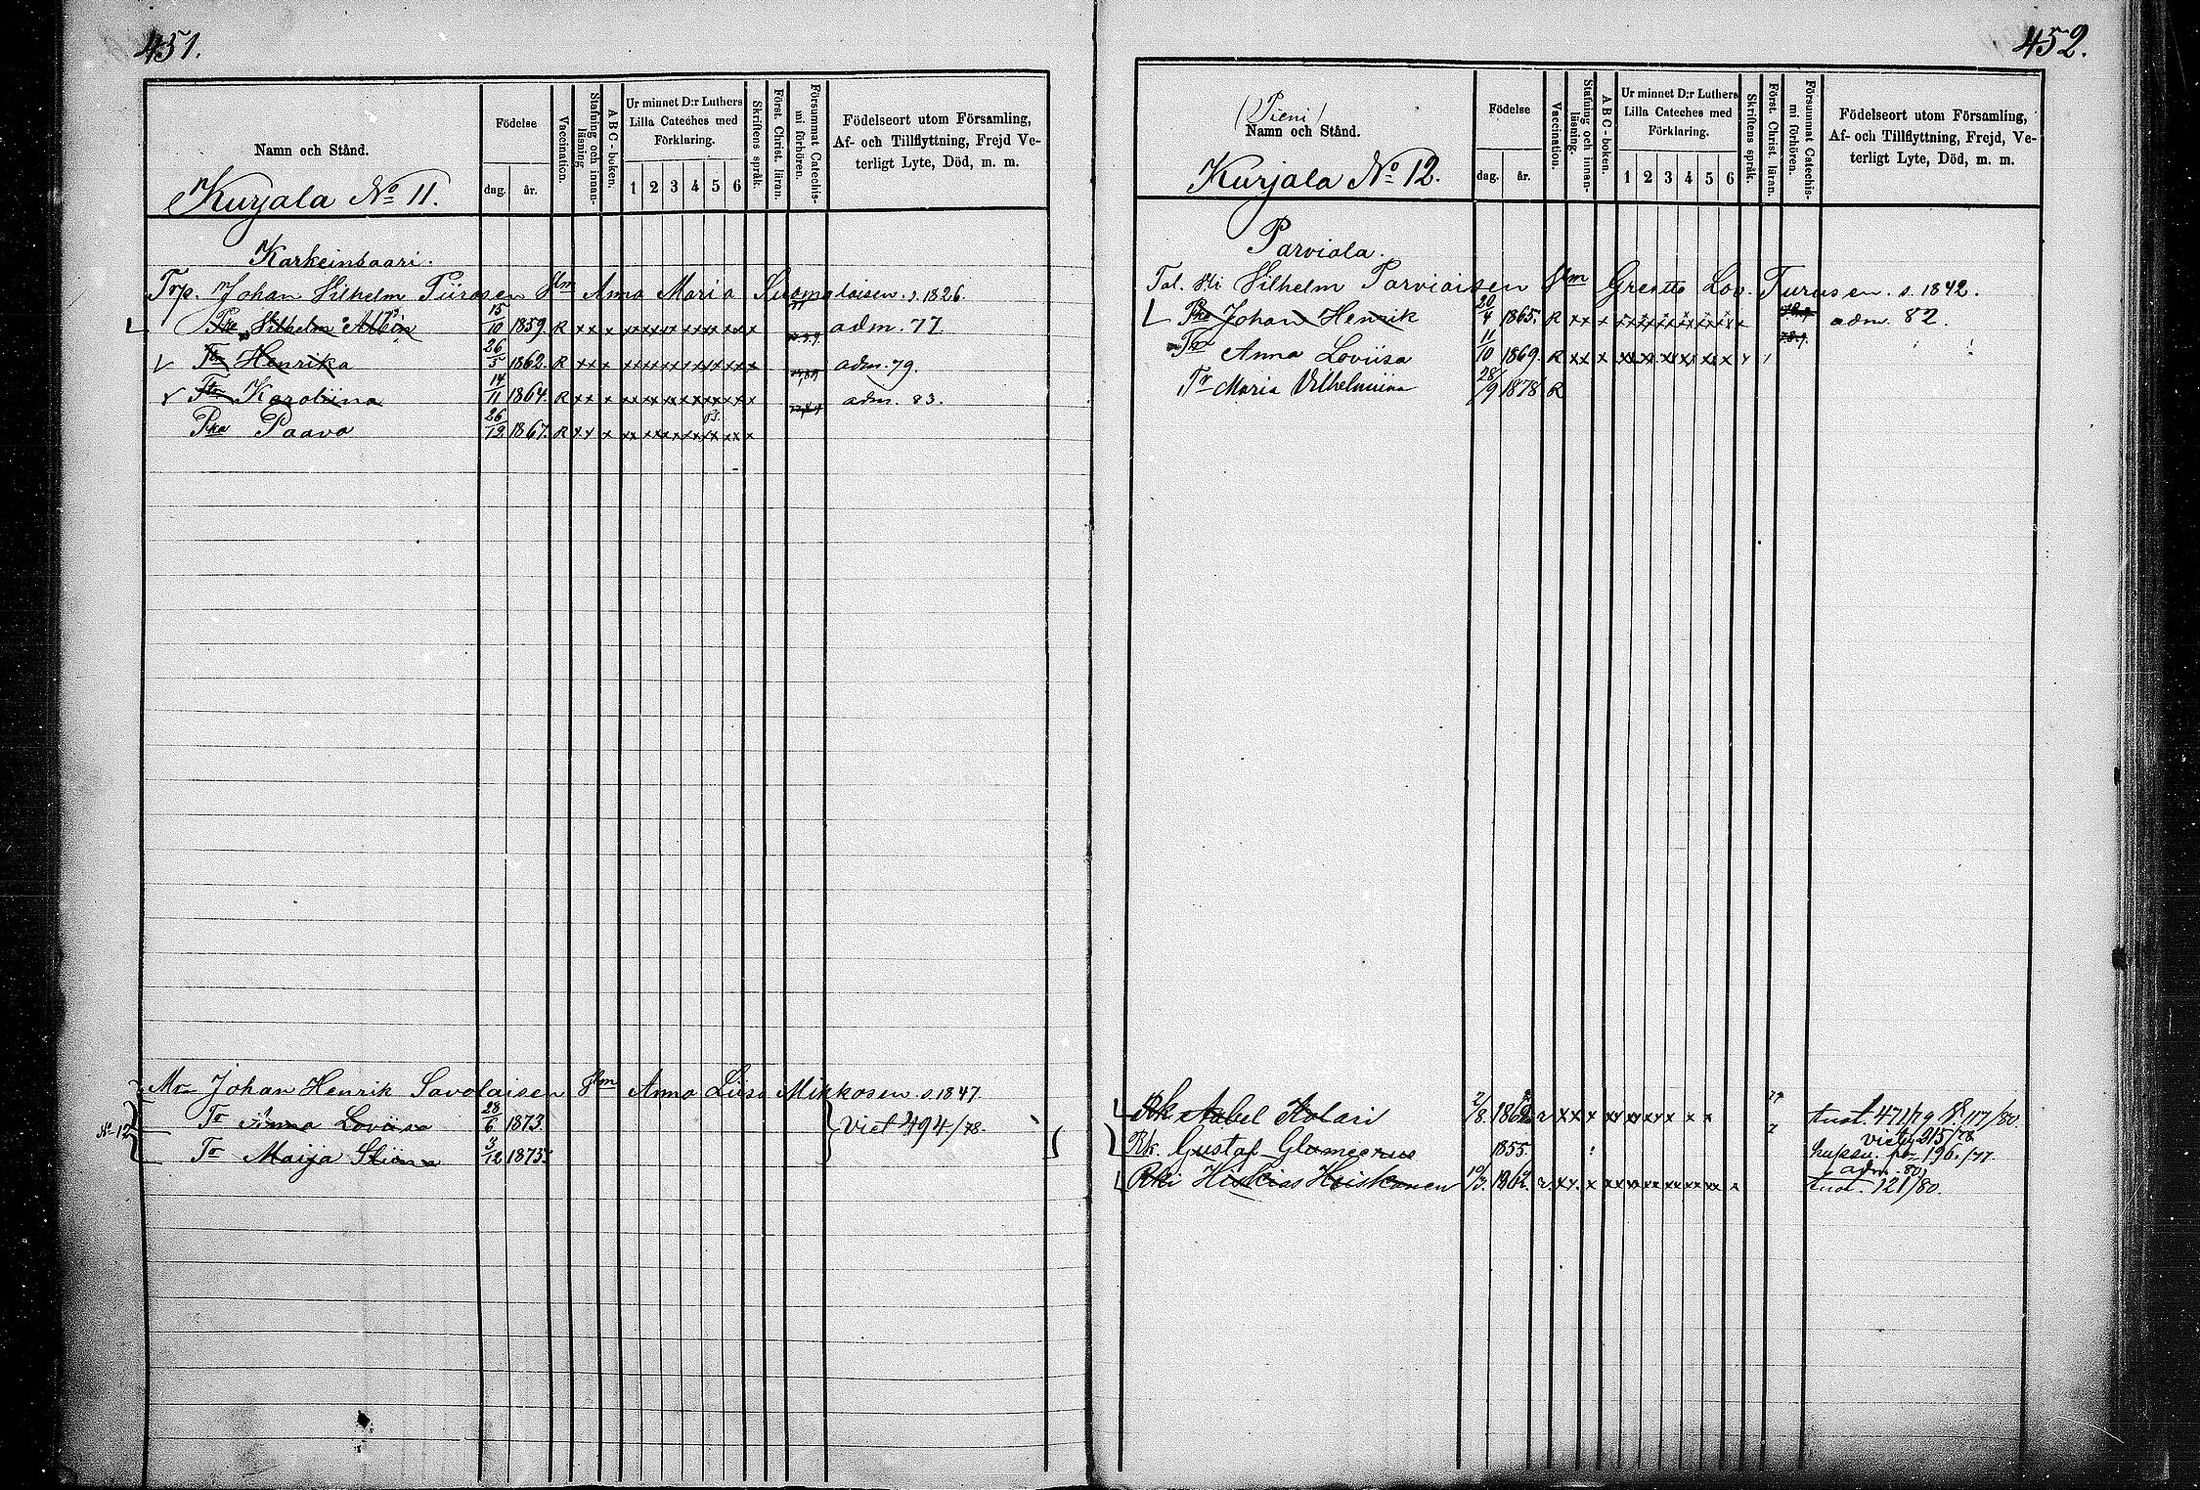 451.
Namn och Stånd.
Födelse
dag. år.
Vaccination.
Stafning och innan-läsning
A B C - boken.
Ur minnet D:r Luthers
Lilla Cateches med
Förklaring.
1 2 3 4 5 6
Skriftens språk.
Först. Christ. läran.
Försummat Catechis-mi förhören.
Födelseort utom Församling,
Af- och Tillflyttning, Frejd Ve-
terligt Lyte, Död, m. m.
Kurjala No 11.
Karkeinsaari.
Johan Vilhelm Piirosen Hm Anna Maria Suomalaisen s. 1826.
Pka Vilhelm Albin 15/10 1859. R xx x adm. 77.
Tr Henrika 26/5 1862. R xx x adm. 79.
Tr Karoliina 14/11 1864. R xx x adm. 83.
Pka Paavo 26/12 1867. R xx x
Johan Henrik Savolaisen Hm Anna Liisa Mikkosen s. 1847.
Tr Anna Loviisa 28/6 1873. viet 494/78.
No 12
Tr Maija Stiina 3/12 1875.
452.
(Pieni)
Namn och Stånd.
Födelse
dag. år.
Vaccination.
Stafning och innan-läsning.
A B C - boken.
Ur minnet D:r Luthers
Lilla Cateches med
Förklaring.
1 2 3 4 5 6
Skriftens språk.
Först. Christ. läran.
Försummat Catechis-mi förhören.
Födelseort utom Församling,
Af- och Tillflyttning, Frejd, Ve-
terligt Lyte, Död, m. m.
Kurjala No 12.
Parviala.
Tal. Vilhelm Parviaisen Hm Greetta Lov. Turusen. s. 1842.
Pka Johan Henrik 20/4 1865. R xx x adm. 82.
Tr Anna Loviisa 11/10 1869. R xx x
Tr Maria Vilhelmiina 28/9 1878 R
Rk Aabel Aolari 2/8 1862 tuot. 471/79 117/80.
viety 215/78
Rk. Gustaf Glomeerus 1855. 196./77.
adm. 80,
Rki Hiskias Heiskanen 10/3. 1862. tuot. 121/80.